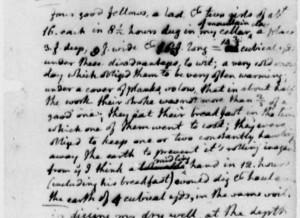 four good fellows, a lad, & two girls of abt
16. each in 8½ hours dug in my cellar, a place
3 f. deep, wide long = cubical yds.
under these disadvantages, to wit; a very cold snowy
day which obliged them to be very often warming;
under a cover of planks, so low, that in about half
the work their stroke was not more than ⅔ of a
good one; they got their breakfast in the time
which one of them went to cook; they were
obliged to keep one or two constantly hauling
away the earth to prevent it's rolling in again
from this I think a midling hand in 12. hours
(including his breakfast) could dig & haul away
the earth of 4 cubical yds, in the same soil,
in digging my dry well at the depth